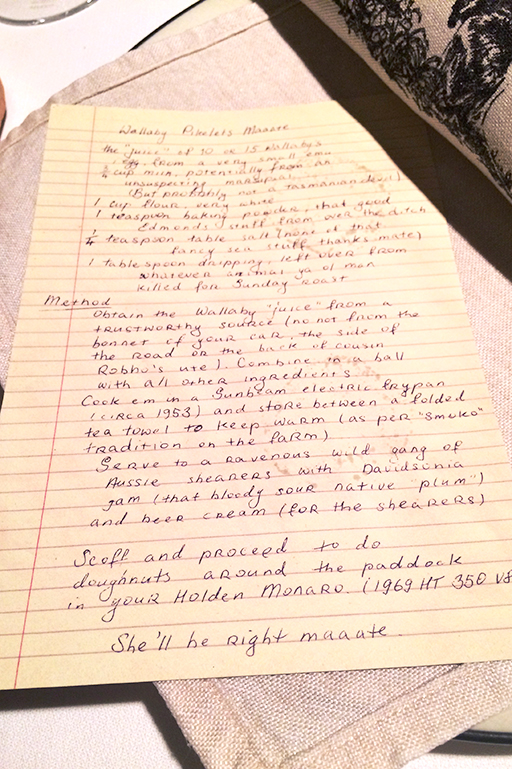 Wallaby Pikelets Maaate
the "juice" of 10 or 15 wallabys
1 egg, from a very small emu
3/4 cup milk, potentially from an
unsuspecting marsupial
(But probibly not a Tasmanian devil)
1 cup flour, very white
1 teaspoon baking powder, that good
Edmonds stuff from over the ditch
1/4 teaspoon table salt (none of that
fancy sea stuff thanks mate)
1 tablespoon dripping, left over from
whatever animal ya ol man
killed for Sunday roast
Method
Obtain the Wallaby "juice" from a
trustworthy source (no not from the
bonnet of your car, the side of
the road or the back of cousin
Robbo's ute). Combine in a ball
with all other ingredients.
Cook em in a Sunbeam electric frypan
(circa 1953) and store between a folded
tea towel to keep warm (as per "smoko"
tradition on the farm)
Serve to a ravenous wild gang of
Aussie shearers with Davidsonia
jam (that bloody sour native "plum")
and beer cream (for the shearers)
Scoff and proceed to do
doughnuts around the paddock
in your Holden Monaro. (1969 HT 350 V8
She'll be right maaate.